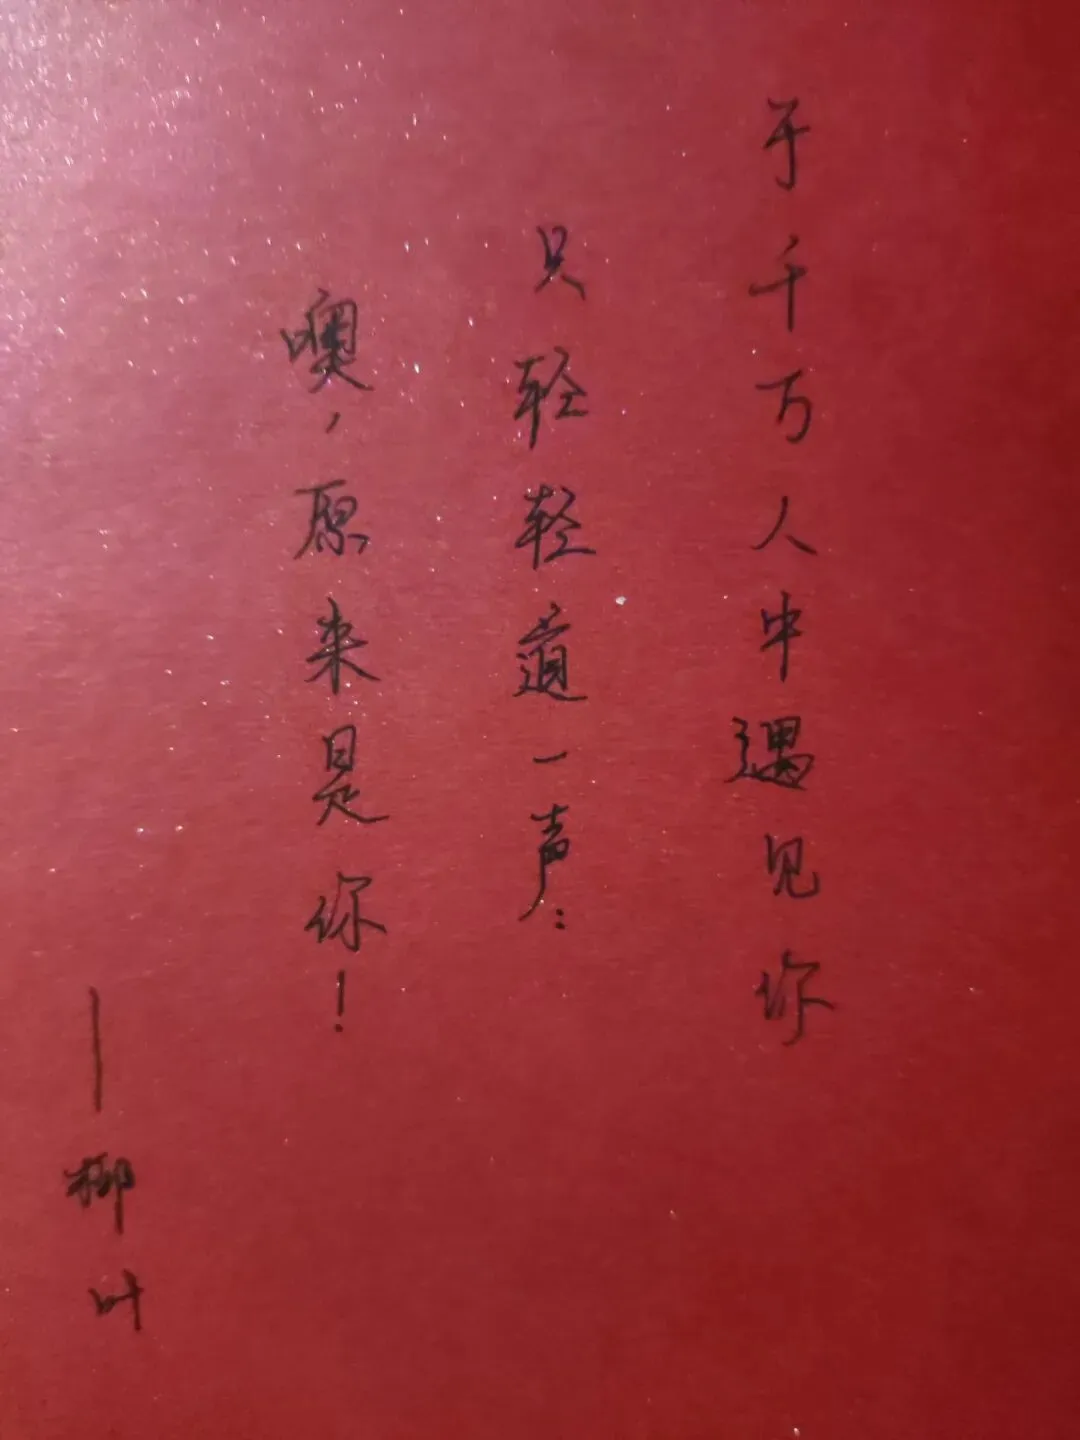 于千万人中遇见你
只轻轻道一声：
噢，原来是你！
——柳叶